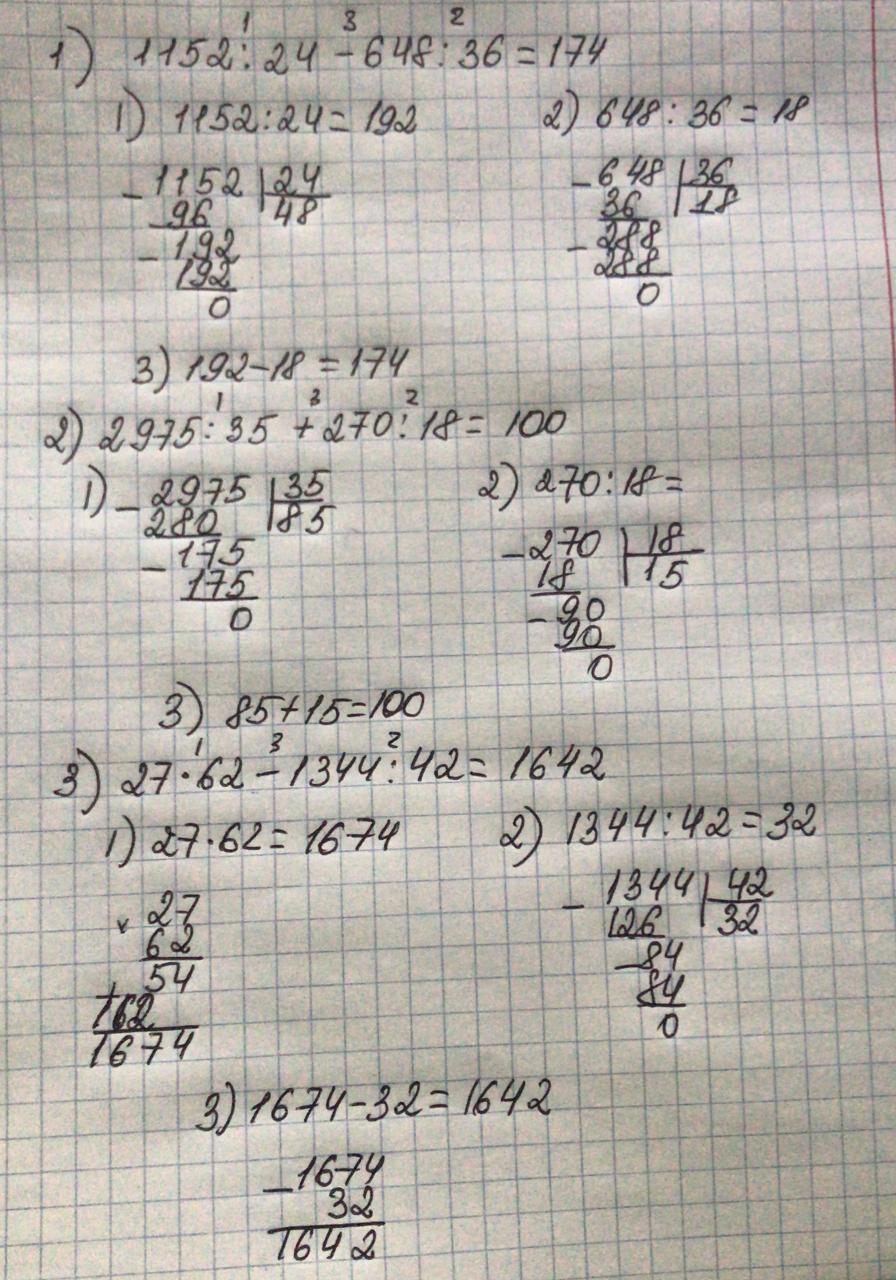 1) 1152 : 24 - 648 : 36 = 174
1 3 2
1) 1152 : 24 = 192 2) 648 : 36 = 18
- 1152 | 24 - 648 | 36
96 48 36 18
- 192 - 288
192 288
0 0
3) 192 - 18 = 174
1 3 2
2) 2975 : 35 + 270 : 18 = 100
1) - 2975 | 35 2) 270 : 18 =
280 85 - 270 | 18
- 175 18 15
175 - 90
0 90
0
3) 85 + 15 = 100
1 3 2
3) 27 · 62 - 1344 : 42 = 1642
1) 27 · 62 = 1674 2) 1344 : 42 = 32
× 27 - 1344 | 42
62 126 32
54 - 84
+ 162 84
1674 0
3) 1674 - 32 = 1642
- 1674
32
1642